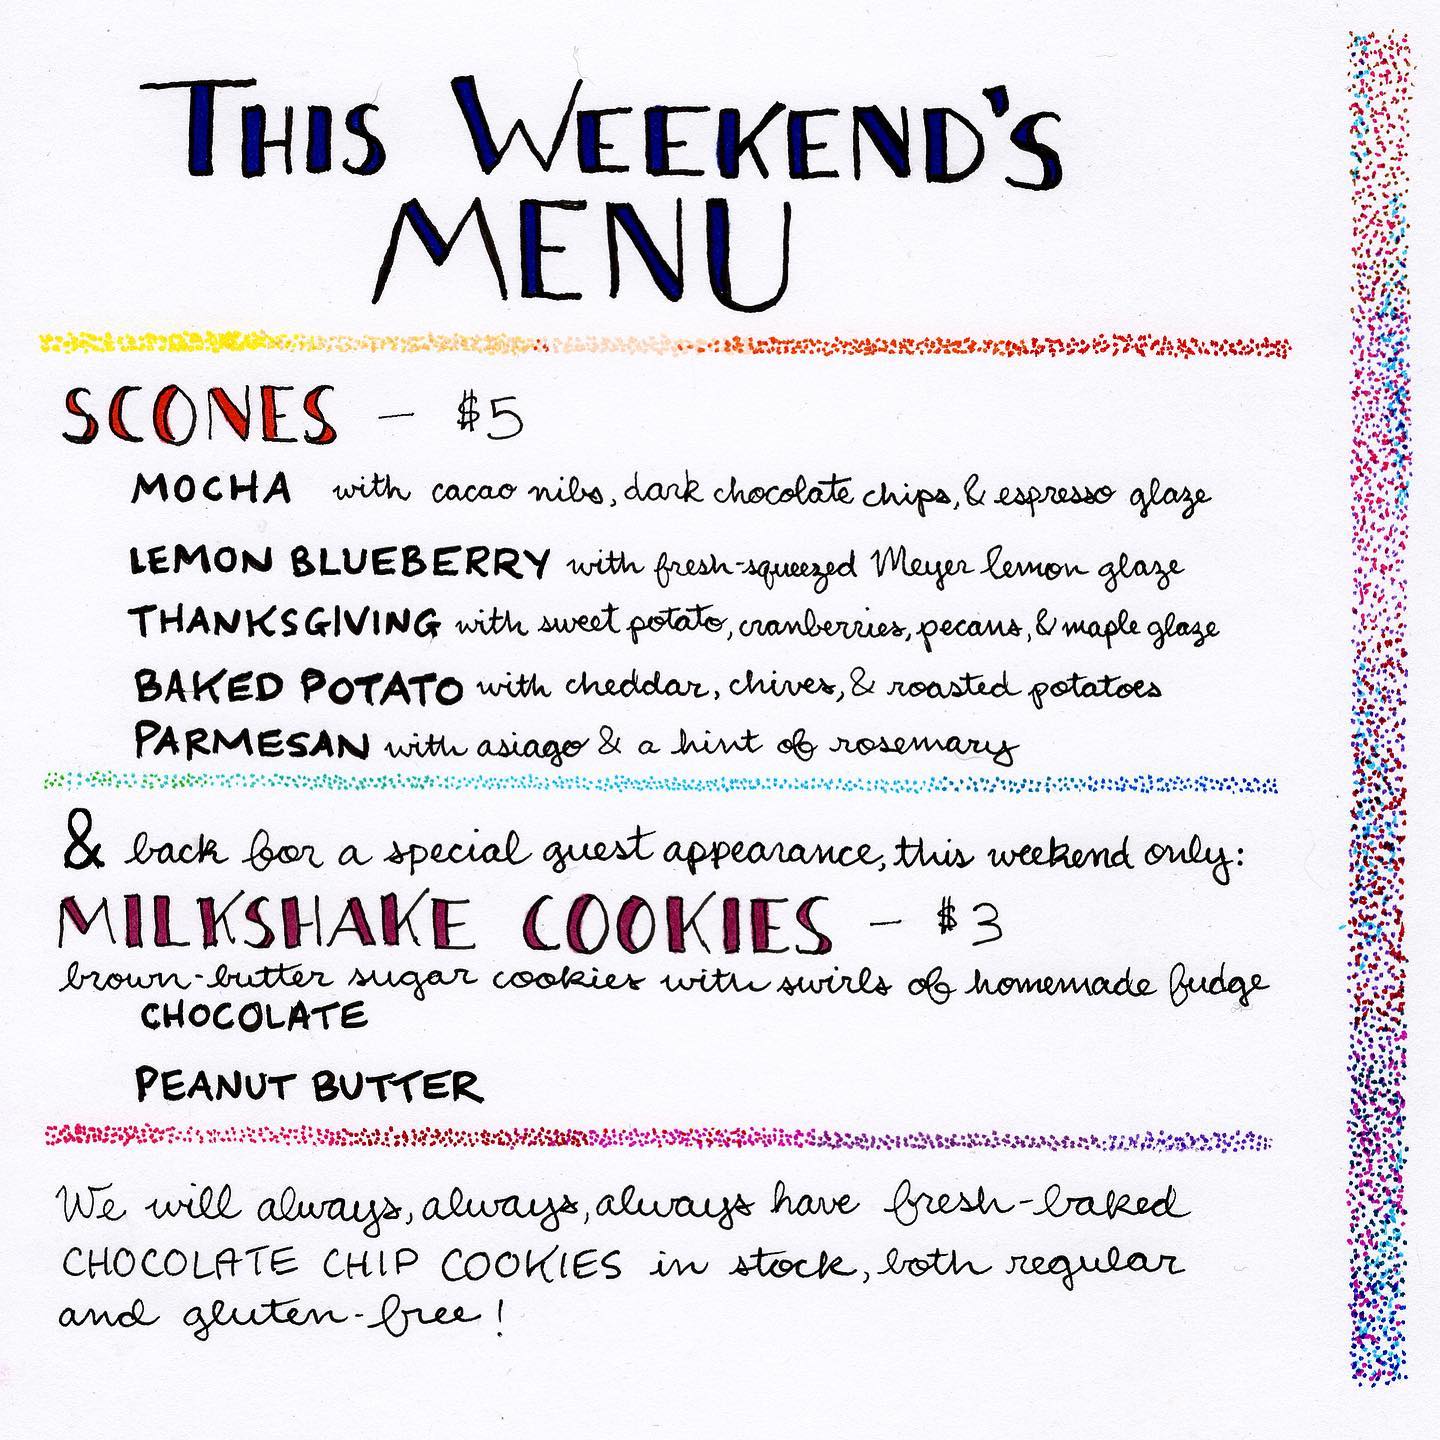 THIS WEEKEND'S
MENU
SCONES – $5
MOCHA with cacao nibs, dark chocolate chips, & espresso glaze
LEMON BLUEBERRY with fresh-squeezed Meyer lemon glaze
THANKSGIVING with sweet potato, cranberries, pecans, & maple glaze
BAKED POTATO with cheddar, chives, & roasted potatoes
PARMESAN with asiago & a hint of rosemary
& back for a special guest appearance, this weekend only:
MILKSHAKE COOKIES – $3
brown-butter sugar cookies with swirls of homemade fudge
CHOCOLATE
PEANUT BUTTER
We will always, always, always have fresh-baked
CHOCOLATE CHIP COOKIES in stock, both regular
and gluten-free!